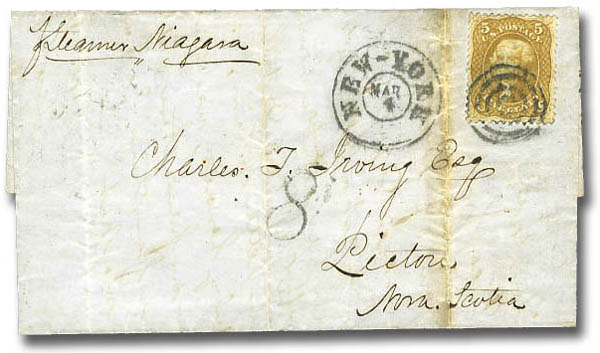 pr Steamer Niagara
NEW-YORK
MAR
4
5 5
U.S. POSTAGE
Charles. T. Irving Esq
8
Pictou
Nova. Scotia